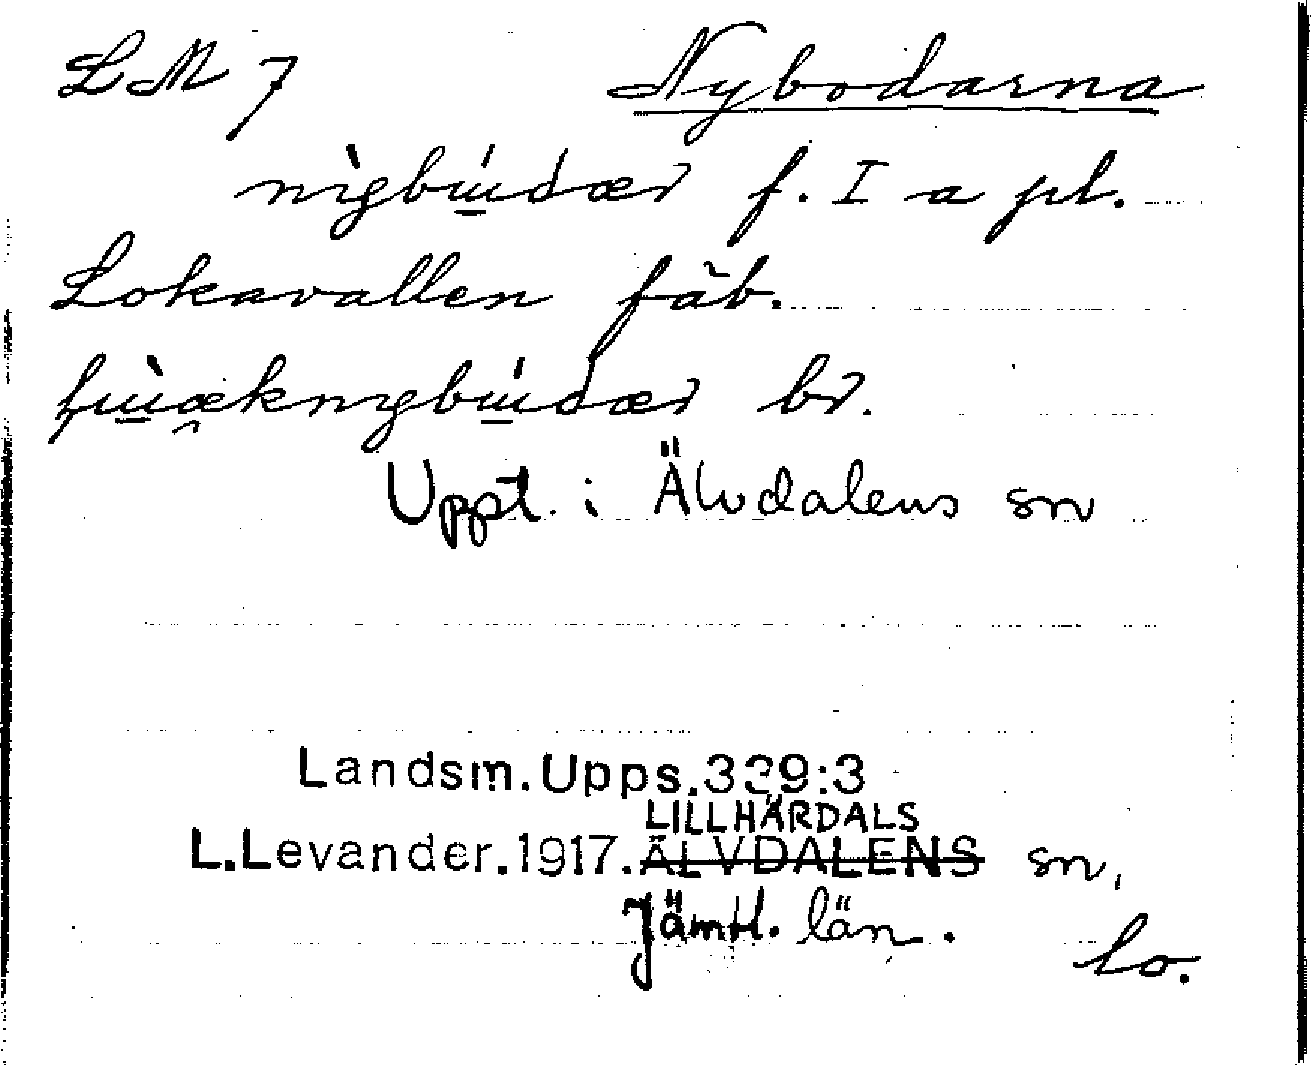 LM 7 Nybodarna
f. I a pl.
Lokavallen fäb.
br.
Uppt. i Älvdalens sn
Landsm.Upps.339:3
LILLHÄRDALS
L.Levander.1917. ÄLVDALENS sn,
Jämtl. län.
Lo.